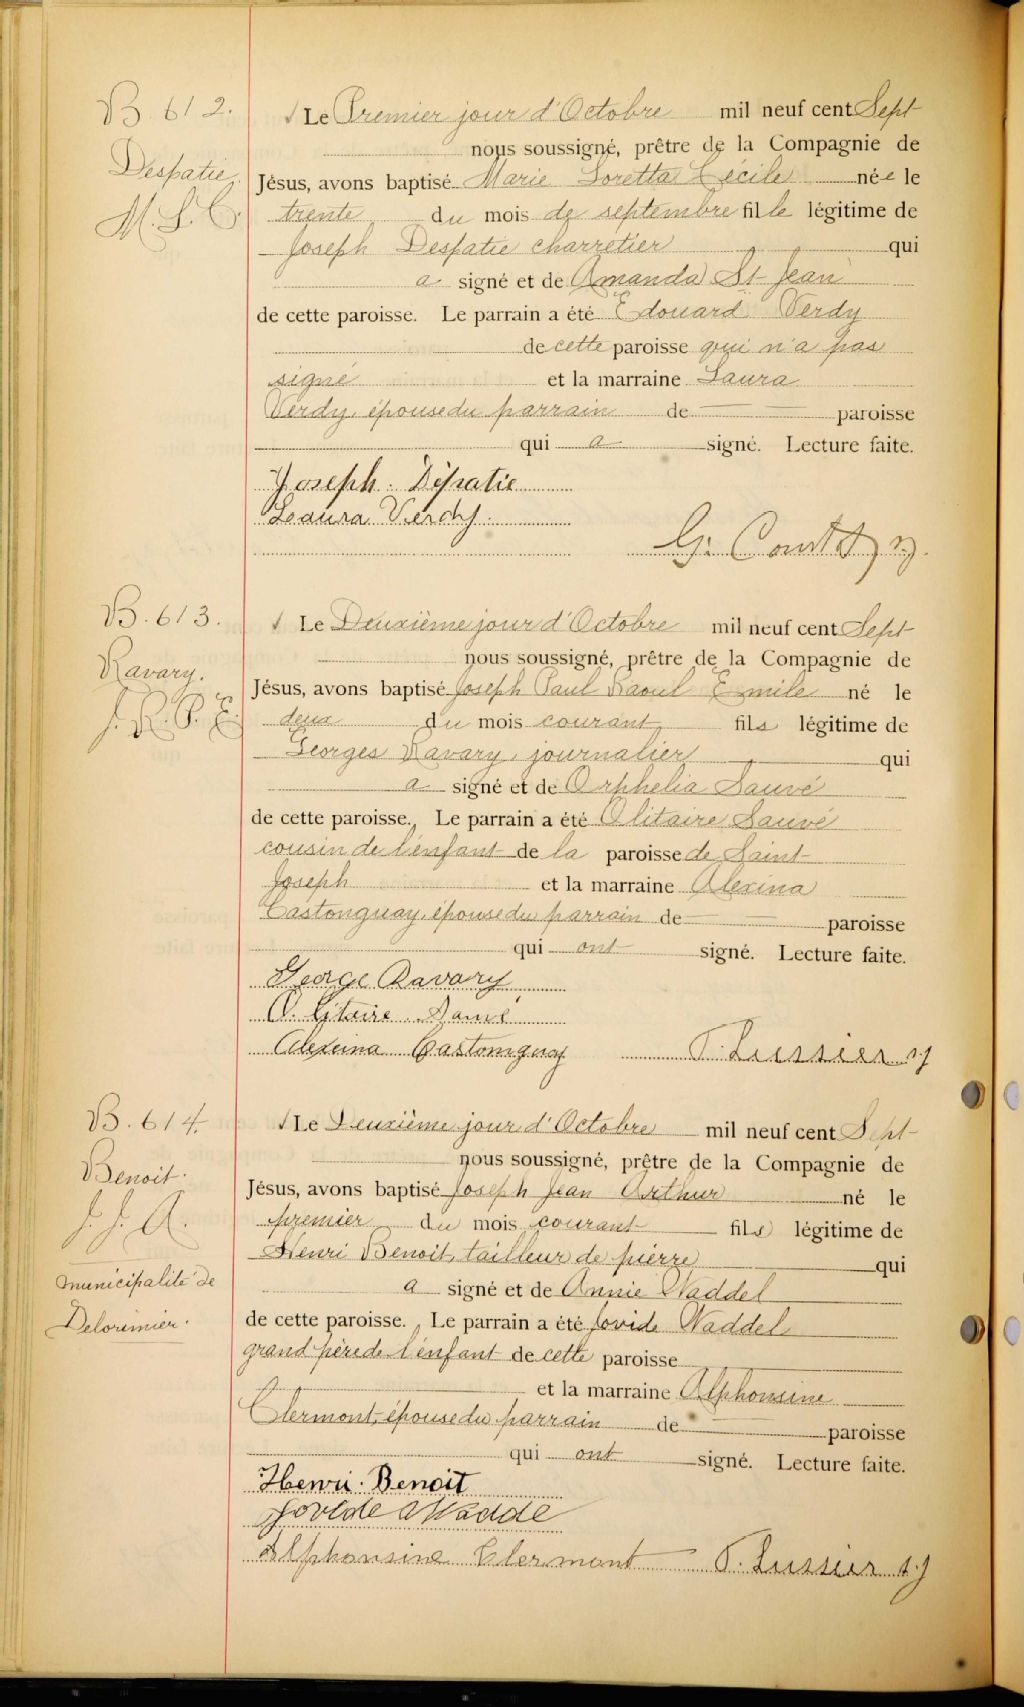 B. 612.
Despatie.
M. L. C.
Le Premier jour d'Octobre mil neuf cent Sept
nous soussigné, prêtre de la Compagnie de
Jésus, avons baptisé Marie Loretta Cécile née le
trente du mois de septembre fille légitime de
Joseph Despatie charretier qui
a signé et de Amanda St-Jean
de cette paroisse. Le parrain a été Edouard Verdy
de cette paroisse qui n'a pas
signé et la marraine Laura
Verdy, épouse du parrain de — — paroisse
qui a signé. Lecture faite.
Joseph Dépatie
Laura Verdy.
G.
B. 613.
Ravary.
J. R. P. E.
Le Deuxième jour d'Octobre mil neuf cent Sept
nous soussigné, prêtre de la Compagnie de
Jésus, avons baptisé Joseph Paul Raoul Emile né le
deux du mois courant fils légitime de
Georges Ravary, journalier qui
a signé et de Orphelia Sauvé
de cette paroisse. Le parrain a été Olitaire Sauvé
cousin de l'enfant de la paroisse de Saint-
Joseph et la marraine Alexina
Castonguay, épouse du parrain de — — paroisse
qui ont signé. Lecture faite.
George Ravary
O. litaire Sauvé
Alexina Castonguay
T. Lussier s.j
B. 614.
Benoit.
J. J. A.
municipalité de
Delorimier.
Le Deuxième jour d'Octobre mil neuf cent Sept
nous soussigné, prêtre de la Compagnie de
Jésus, avons baptisé Joseph Jean Arthur né le
premier du mois courant fils légitime de
Henri Benoit, tailleur de pierre qui
a signé et de Annie Waddel
de cette paroisse. Le parrain a été Jovide Waddel
grand père de l'enfant de cette paroisse
et la marraine Alphonsine
Clermont, épouse du parrain de — — paroisse
qui ont signé. Lecture faite.
Henri Benoit
Jovide Wadde
Alphonsine Clermont
T. Lussier s.j